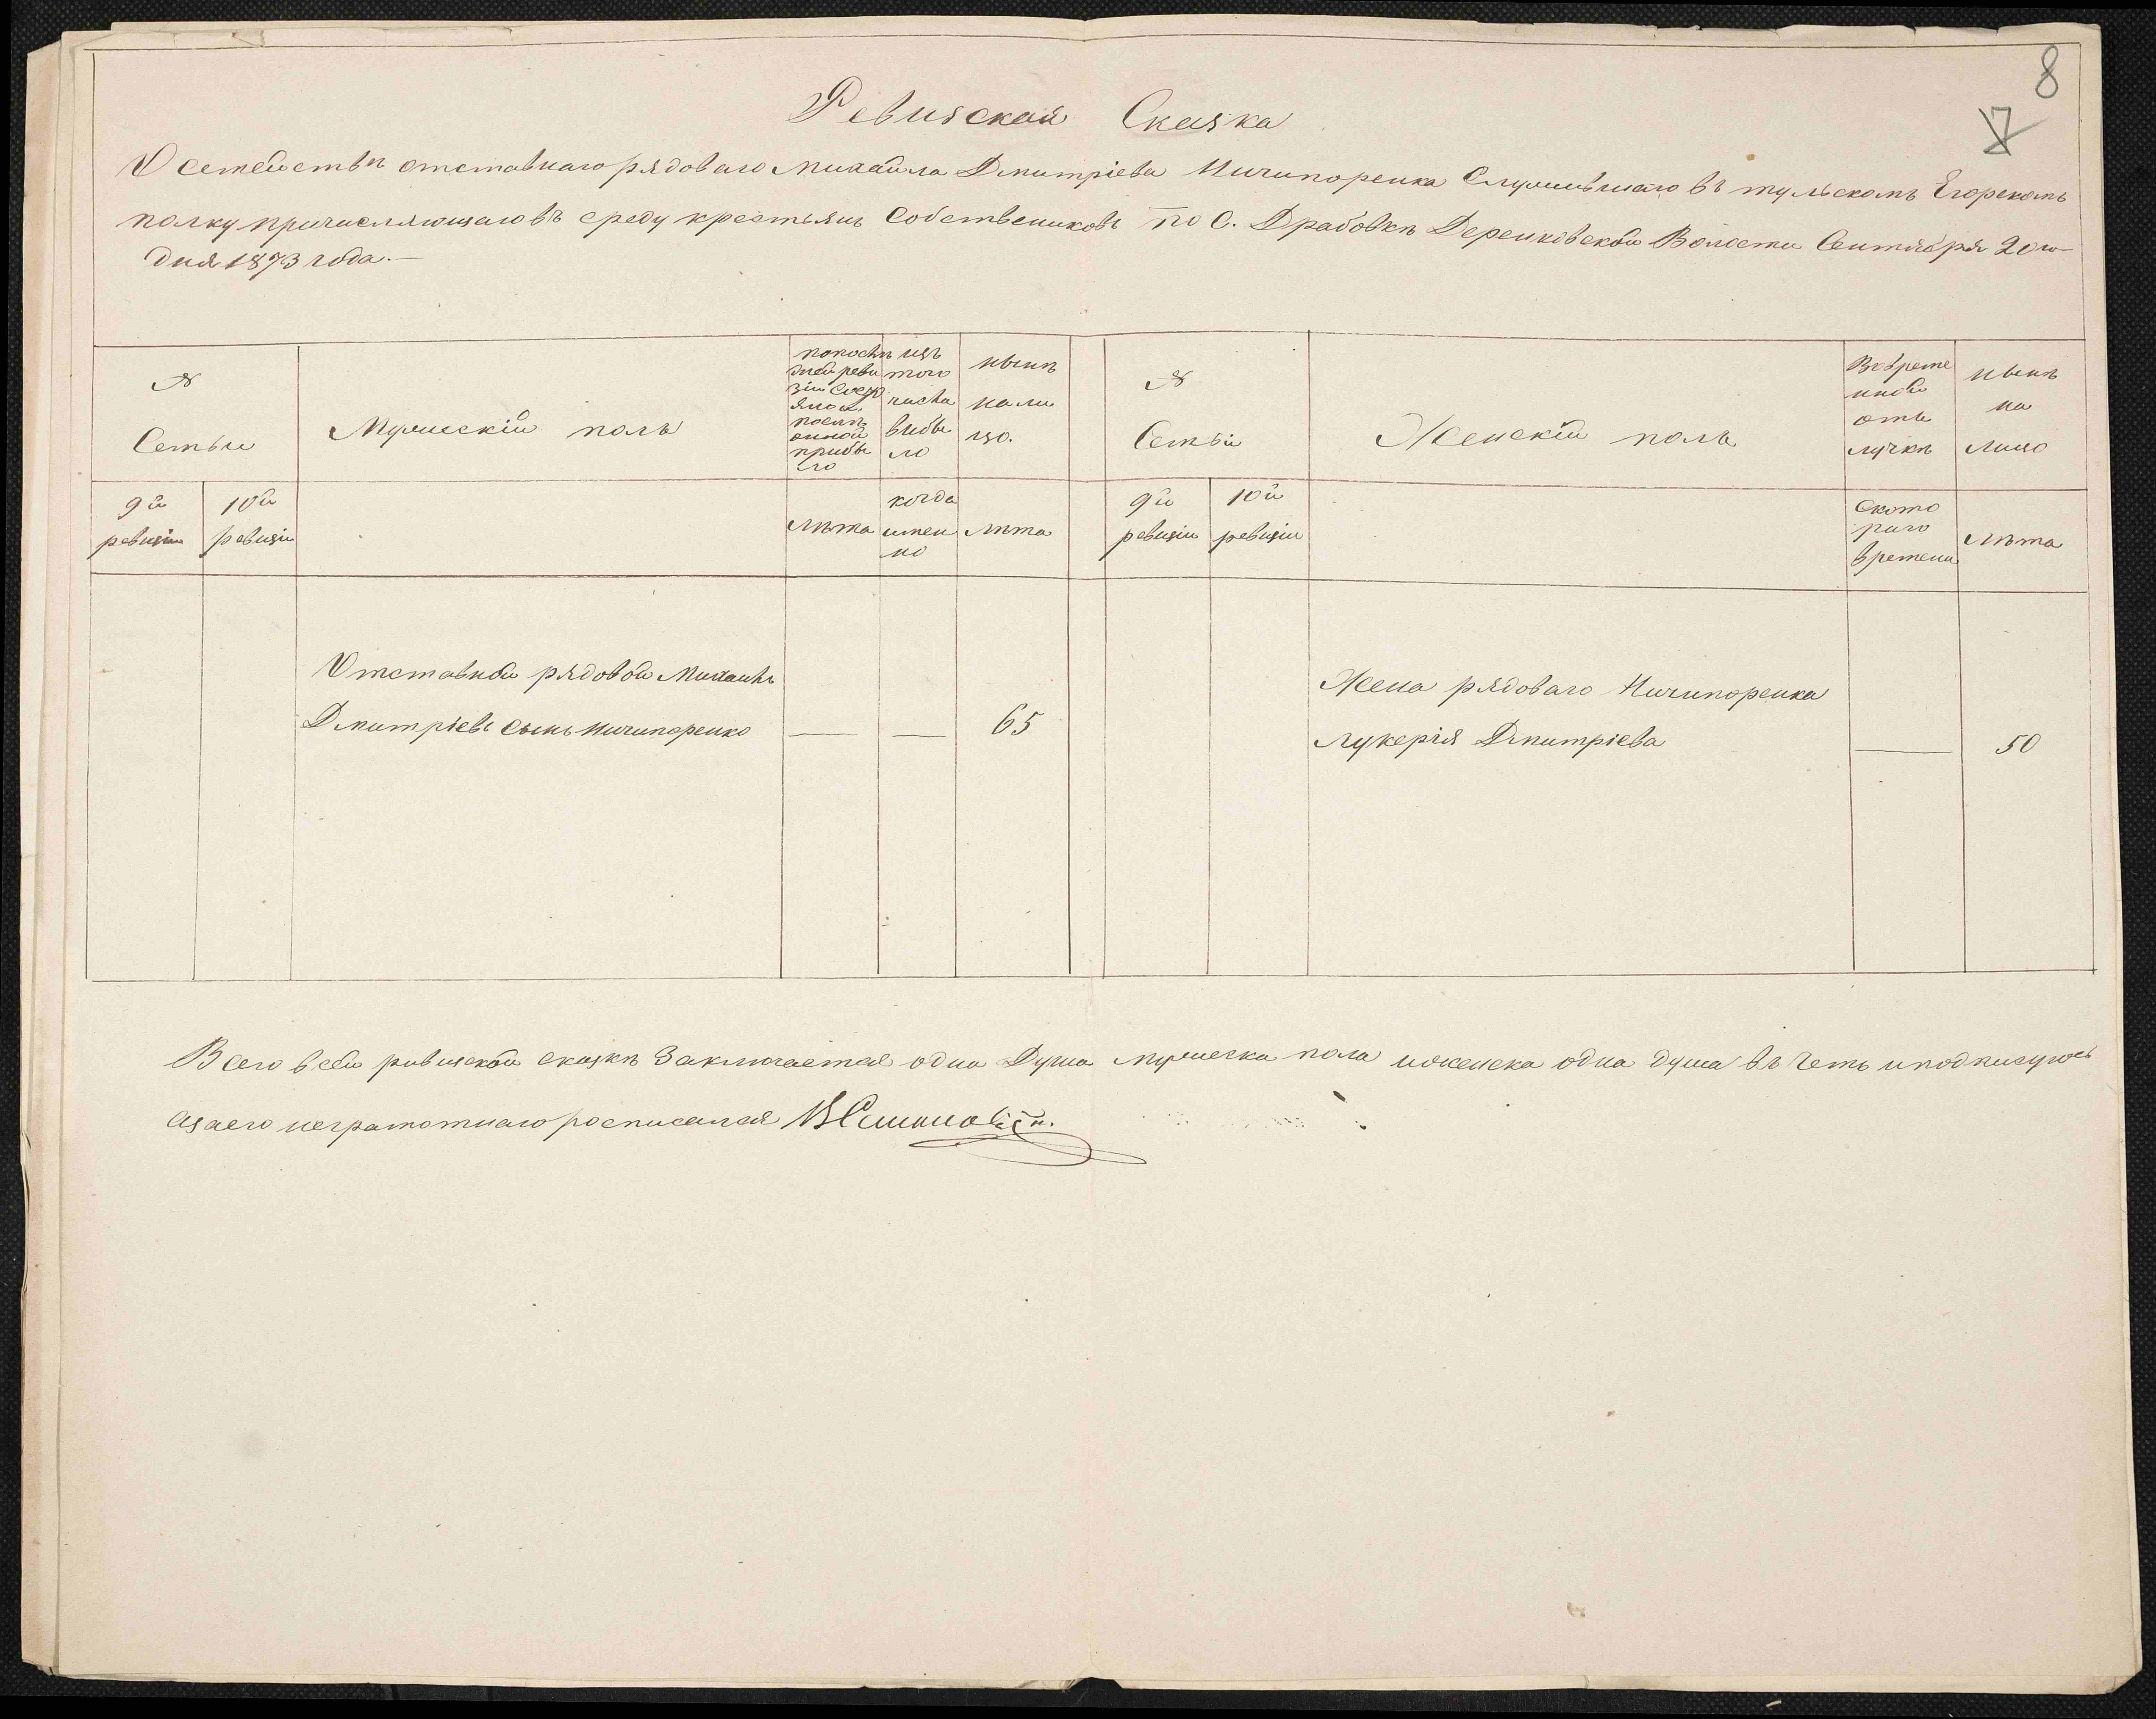 8
7
Ревизская Сказка
О семействѣ отставнаго рядоваго Михайла Дмитріева Ничипоренка Служившаго въ тульскомъ Егорскомъ
полку причисляющаговъ среду крестьянъ Собствениковъ по С. Драбовкѣ Деренковской Волости Сентября 20го
дня 1873 года.—
№ Семьи
Мужескій полъ
попослѣ дней реви зіи состо яло и послѣ онной прибы ло
изъ того числа выбы ло
нынѣ нали цо.
№ Семьи
Женскій полъ
Вовреме нной отъ лучкѣ
нынѣ на лицо
9й ревизіи
10й ревизіи
лѣта
когда имен но
лѣта
9й ревизіи
10й ревизіи
Ското раго времени
лѣта
Отставной рядовой Михаилъ
Дмитріевъ сынъ Ничипоренко — — 65
Жена рядоваго Ничипоренка
Лукерія Дмитріева — 50
Всего всей ревизской сказкѣ Заключается одна Душа мужеска пола иженска одна душа въ чемъ иподписуюсь
азаего неграмотнаго росписался